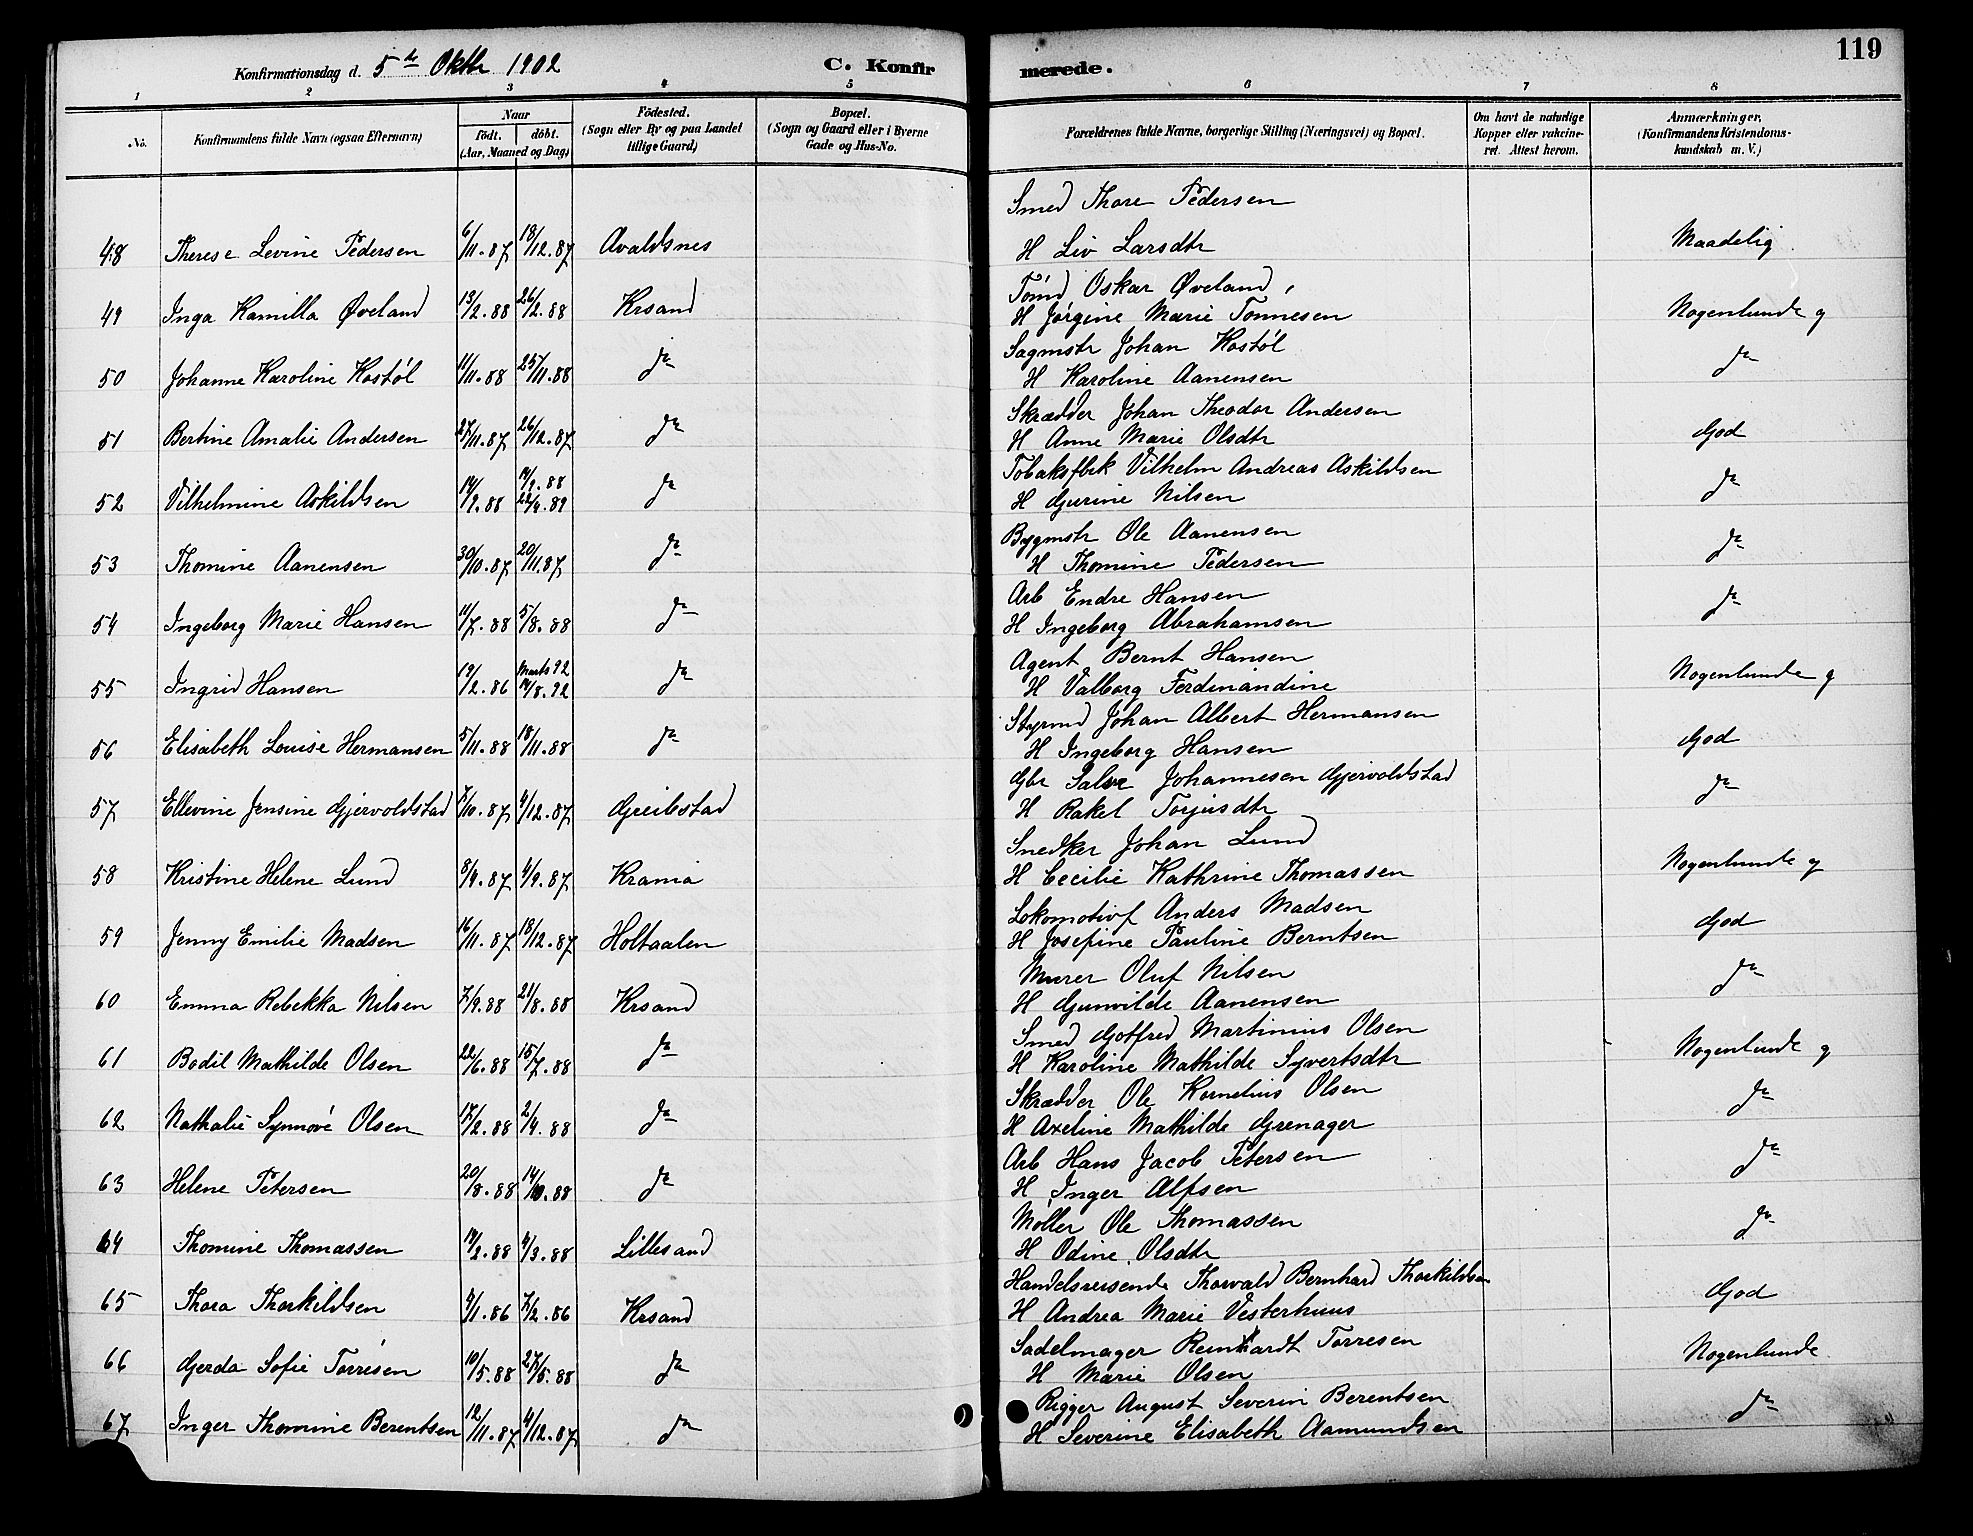 119
Konfirmationsdag d. 5te Oktbr 1902 C. Konfirmerede.
1 2 3 4 5 6 7 8
No. Konfirmandens fulde Navn (ogsaa Efternavn) Naar födt. döbt. (Aar, Maaned og Dag) Födested. (Sogn eller By og paa Landet tillige Gaard) Bopæl. (Sogn og Gaard eller i Byerne Gade og Hus-No. Forældrenes fulde Navne, borgerlige Stilling (Næringsvei) og Bopæl. Om havt de naturlige Kopper eller vakcineret. Attest herom. Anmærkninger. (Konfirmandens Kristendomskundskab m. V.)
Smed Thore Pedersen
48 Therese Levine Pedersen 6/11.87 18/12.87 Avaldsnes H Liv Larsdtr Maadelig
Tømd Oskar Øveland,
49 Inga Kamilla Øveland 13/2.88 26/2.88 Krsand H Jørgine Marie Tønnesen Nogenlunde g
Sagmstr Johan Kostøl
50 Johanne Karoline Kostøl 11/11.88 25/11.88 do H Karoline Aanensen do
Skrædder Johan Theodor Andersen
51 Bertine Amalie Andersen 27/11.87 26/12.87 do H Anne Marie Olsdtr God
Tobaksfbrk Vilhelm Andreas Askildsen
52 Vilhelmine Askildsen 14/9.88 do H Gurine Nilsen do
Bygmstr Ole Aanensen
53 Thomine Aanensen 30/10.87 20/11.87 do H Thomine Pedersen do
Arb Endre Hansen
54 Ingeborg Marie Hansen 11/7.88 5/8.88 do H Ingeborg Abrahamsen do
Agent Bernt Hansen
55 Ingrid Hansen 19/2.86 Marts 92 14/8.92 do H Valborg Ferdinandine Nogenlunde g
Styrmd Johan Albert Hermansen
56 Elisabeth Louise Hermansen 5/11.88 18/11.88 do H Ingeborg Hansen God
Gbr Salve Johannesen Gjervoldstad
57 Ellevine Jensine Gjervoldstad 7/10.87 4/12.87 Greibstad H Rakel Torjusdtr do
Snedker Johan Lund
58 Kristine Helene Lund 8/4.87 4/9.87 Krania H Cecilie Kathrine Thomassen Nogenlunde g
Lokomotivf Anders Madsen
59 Jenny Emilie Madsen 16/11.87 18/12.87 Holtaalen H Josefine Pauline Berntsen God
Murer Oluf Nilsen
60 Emma Rebekka Nilsen 7/9.88 21/8.88 Krsand H Gunvilde Aanensen do
Smed Gotfred Martinius Olsen
61 Bodil Mathilde Olsen 22/6.88 15/7.88 do H Karoline Mathilde Syvertsdtr Nogenlunde g
Skrædder Ole Kornelius Olsen
62 Nathalie Synnøve Olsen 17/2.88 2/4.88 do H Axeline Mathilde Grenager do
Arb Hans Jacob Petersen
63 Helene Petersen 20/8.88 14/10.88 do H Inger Alfsen do
Møller Ole Thomassen
64 Thomine Thomassen 19/2.88 4/3.88 Lillesand H Odine Olsdtr do
Handelsreisende Thorvald Bernhard Thorkildsen
65 Thora Thorkildsen 4/1.86 7/2.86 Krsand H Andrea Marie Vesterhuus God
Sadelmager Reinhardt Torresen
66 Gerda Sofie Torresen 10/5.88 27/5.88 do H Marie Olsen Nogenlunde
Rigger August Severin Berentsen
67 Inger Thomine Berentsen 12/11.87 4/12.87 do H Severine Elisabeth Aamundsen do